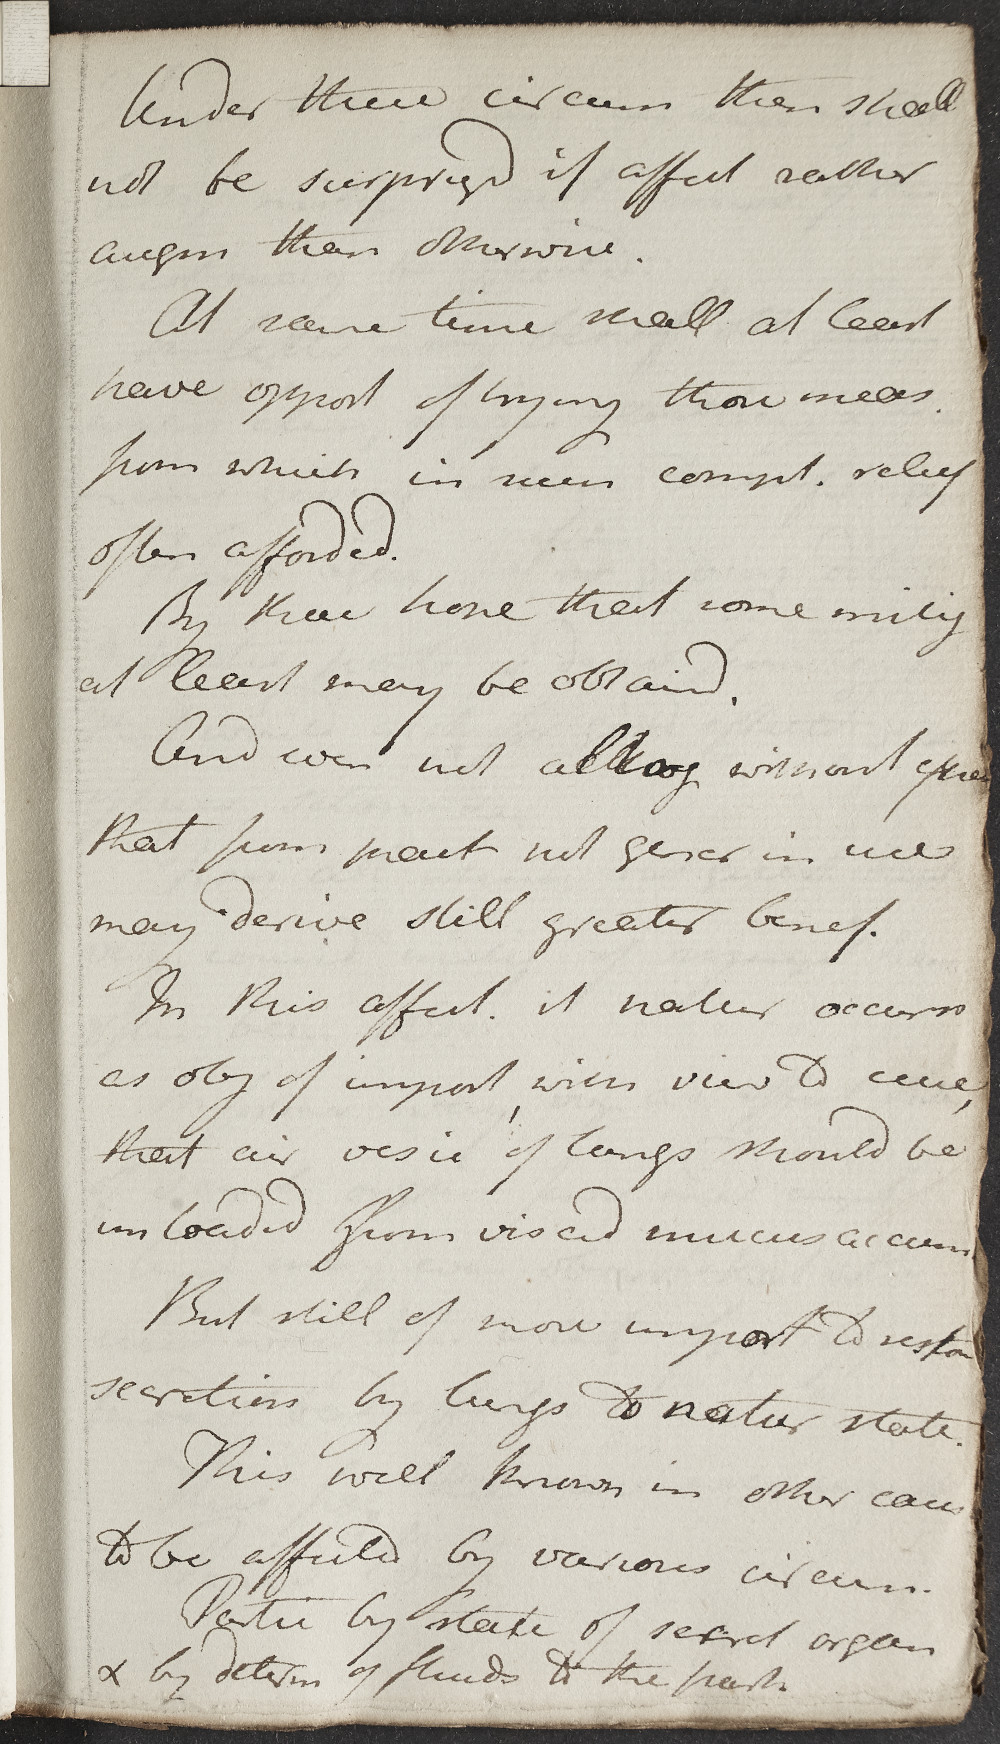 Under these circum then shall
not be surprized if affect rather
augm than otherwise.
At same time shall at least
have opport of trying those meas.
from which in seem compt. relief
often afforded.
By these hope that some mitig
at least may be obtaind.
And even not altog without expec
that from pract not gener in use
may derive still greater benef.
In this affect. it natur occurs
as obj of import, with view to cure,
that air vesic of lungs should be
unloaded from viscid mucus accum.
But still of more import to restore
secretion by lungs to natur state.
This well known in other cases
to be affected by various circum.
Partic by state of secret organ
& by determ of fluids to the part.